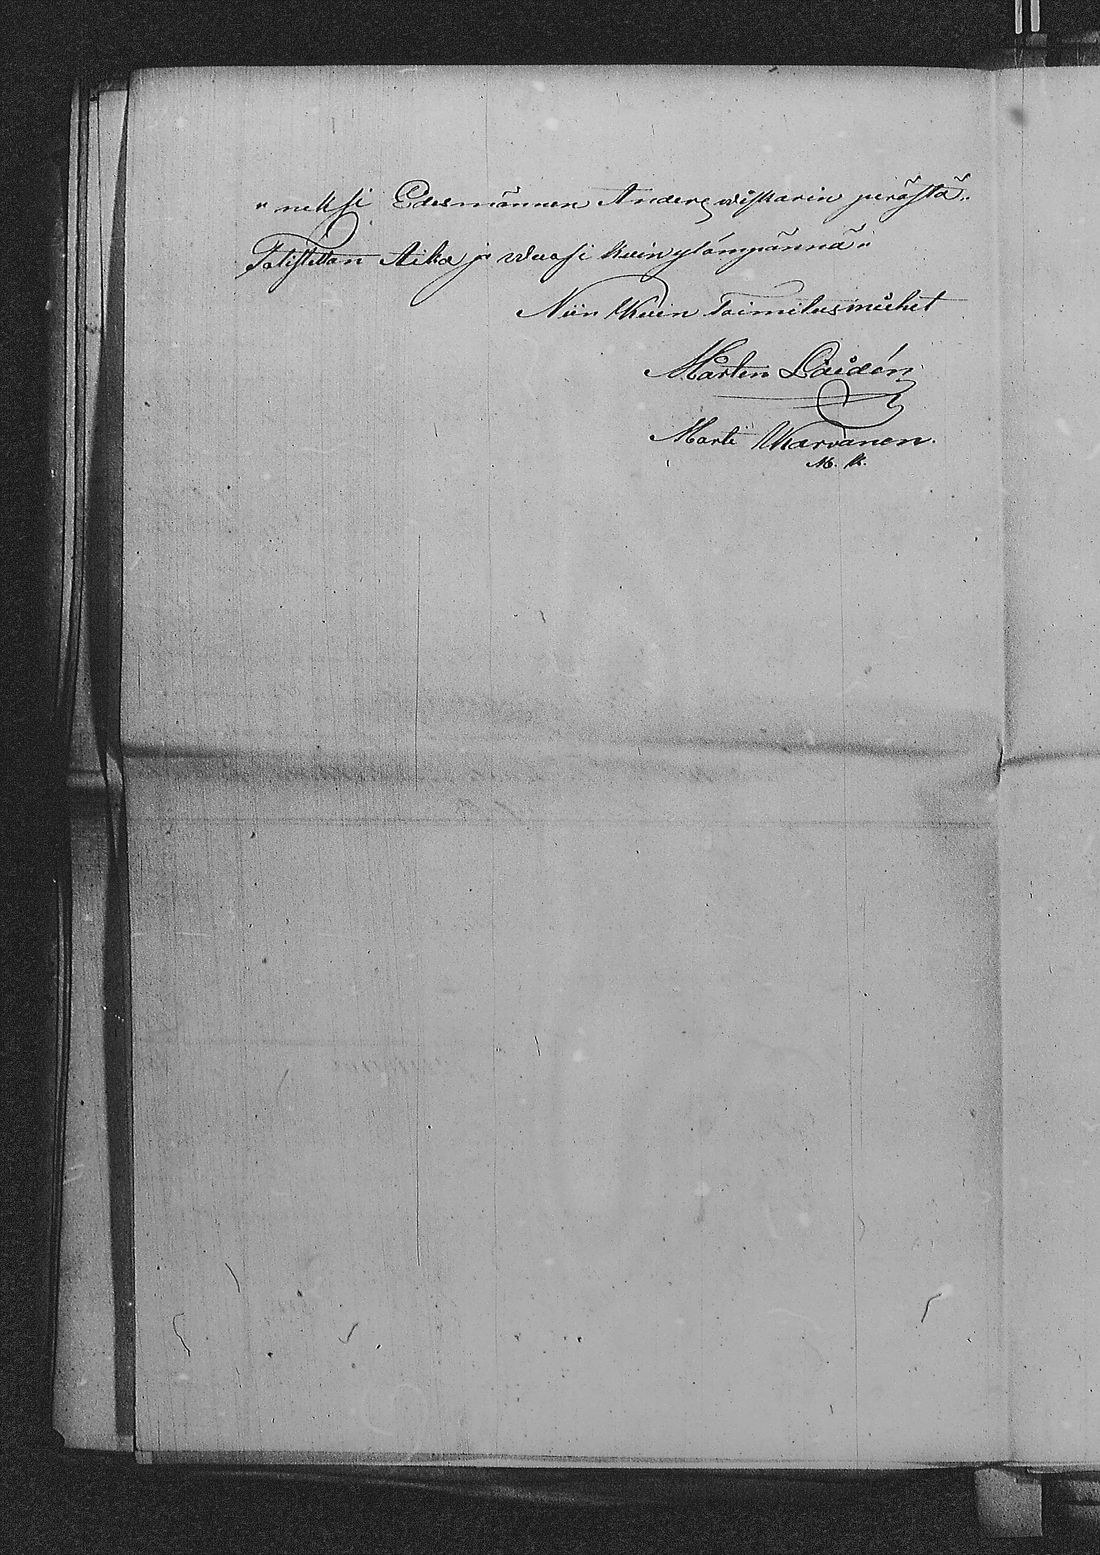 "neksi Edesmännen Anders Wiskarin perästä"
Totistettan Aika ja Wuosi kuin ylämpännä"
Niin Kuin Toimitus miehet
Mårten Laidén
Marti Karvanen.
M. K.